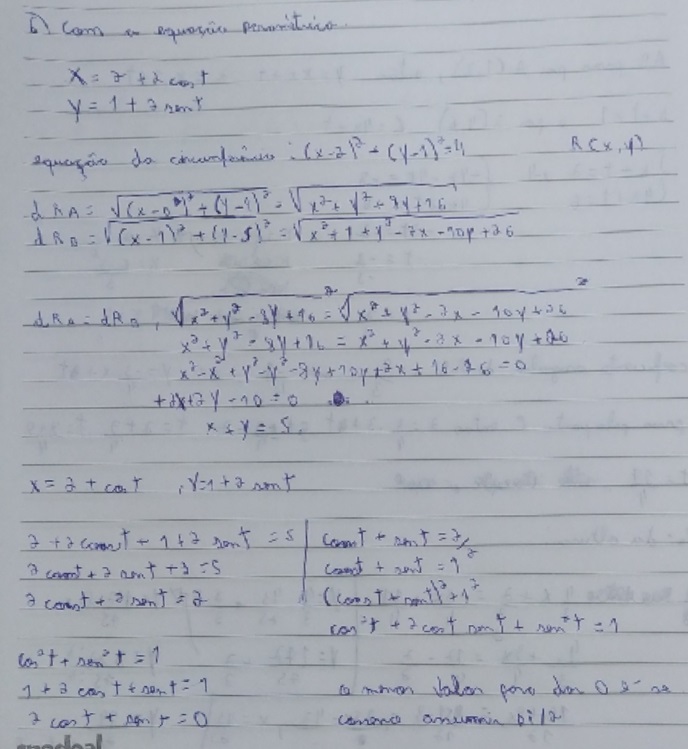 b) Com a equação paramétrica.
x = 2 + 2 cos t
y = 1 + 2 sen t
equação da circunferência : (x-2)² + (y-1)² = 4 R(x, y)
dRA = √(x-0)² + (y-4)² = √x² + y² - 8y + 16
dRB = √(x-1)² + (y-5)² = √x² + 1 + y² - 2x - 10y + 26
dRA = dRB, √x² + y² - 8y + 16 ² = √x² + y² - 2x - 10y + 26 ²
x² + y² - 8y + 16 = x² + y² - 2x - 10y + 26
x² - x² + y² - y² - 8y + 10y + 2x + 16 - 26 = 0
+2x + 2y - 10 = 0
x + y = 5.
x = 2 + cos t , y = 1 + 2 sen t
2 + 2 cos t + 1 + 2 sen t = 5
2 cos t + 2 sen t + 3 = 5
2 cos t + 2 sen t = 2
cos t + sen t = 2/2
cos t + sen t = 1
(cos t + sen t)² = 1²
cos² t + 2 cos t sen t + sen² t = 1
cos² t + sen² t = 1
1 + 2 cos t + sen t = 1
2 cos t + sen t = 0
o menor valor para dar 0 é se
assumir pi/2